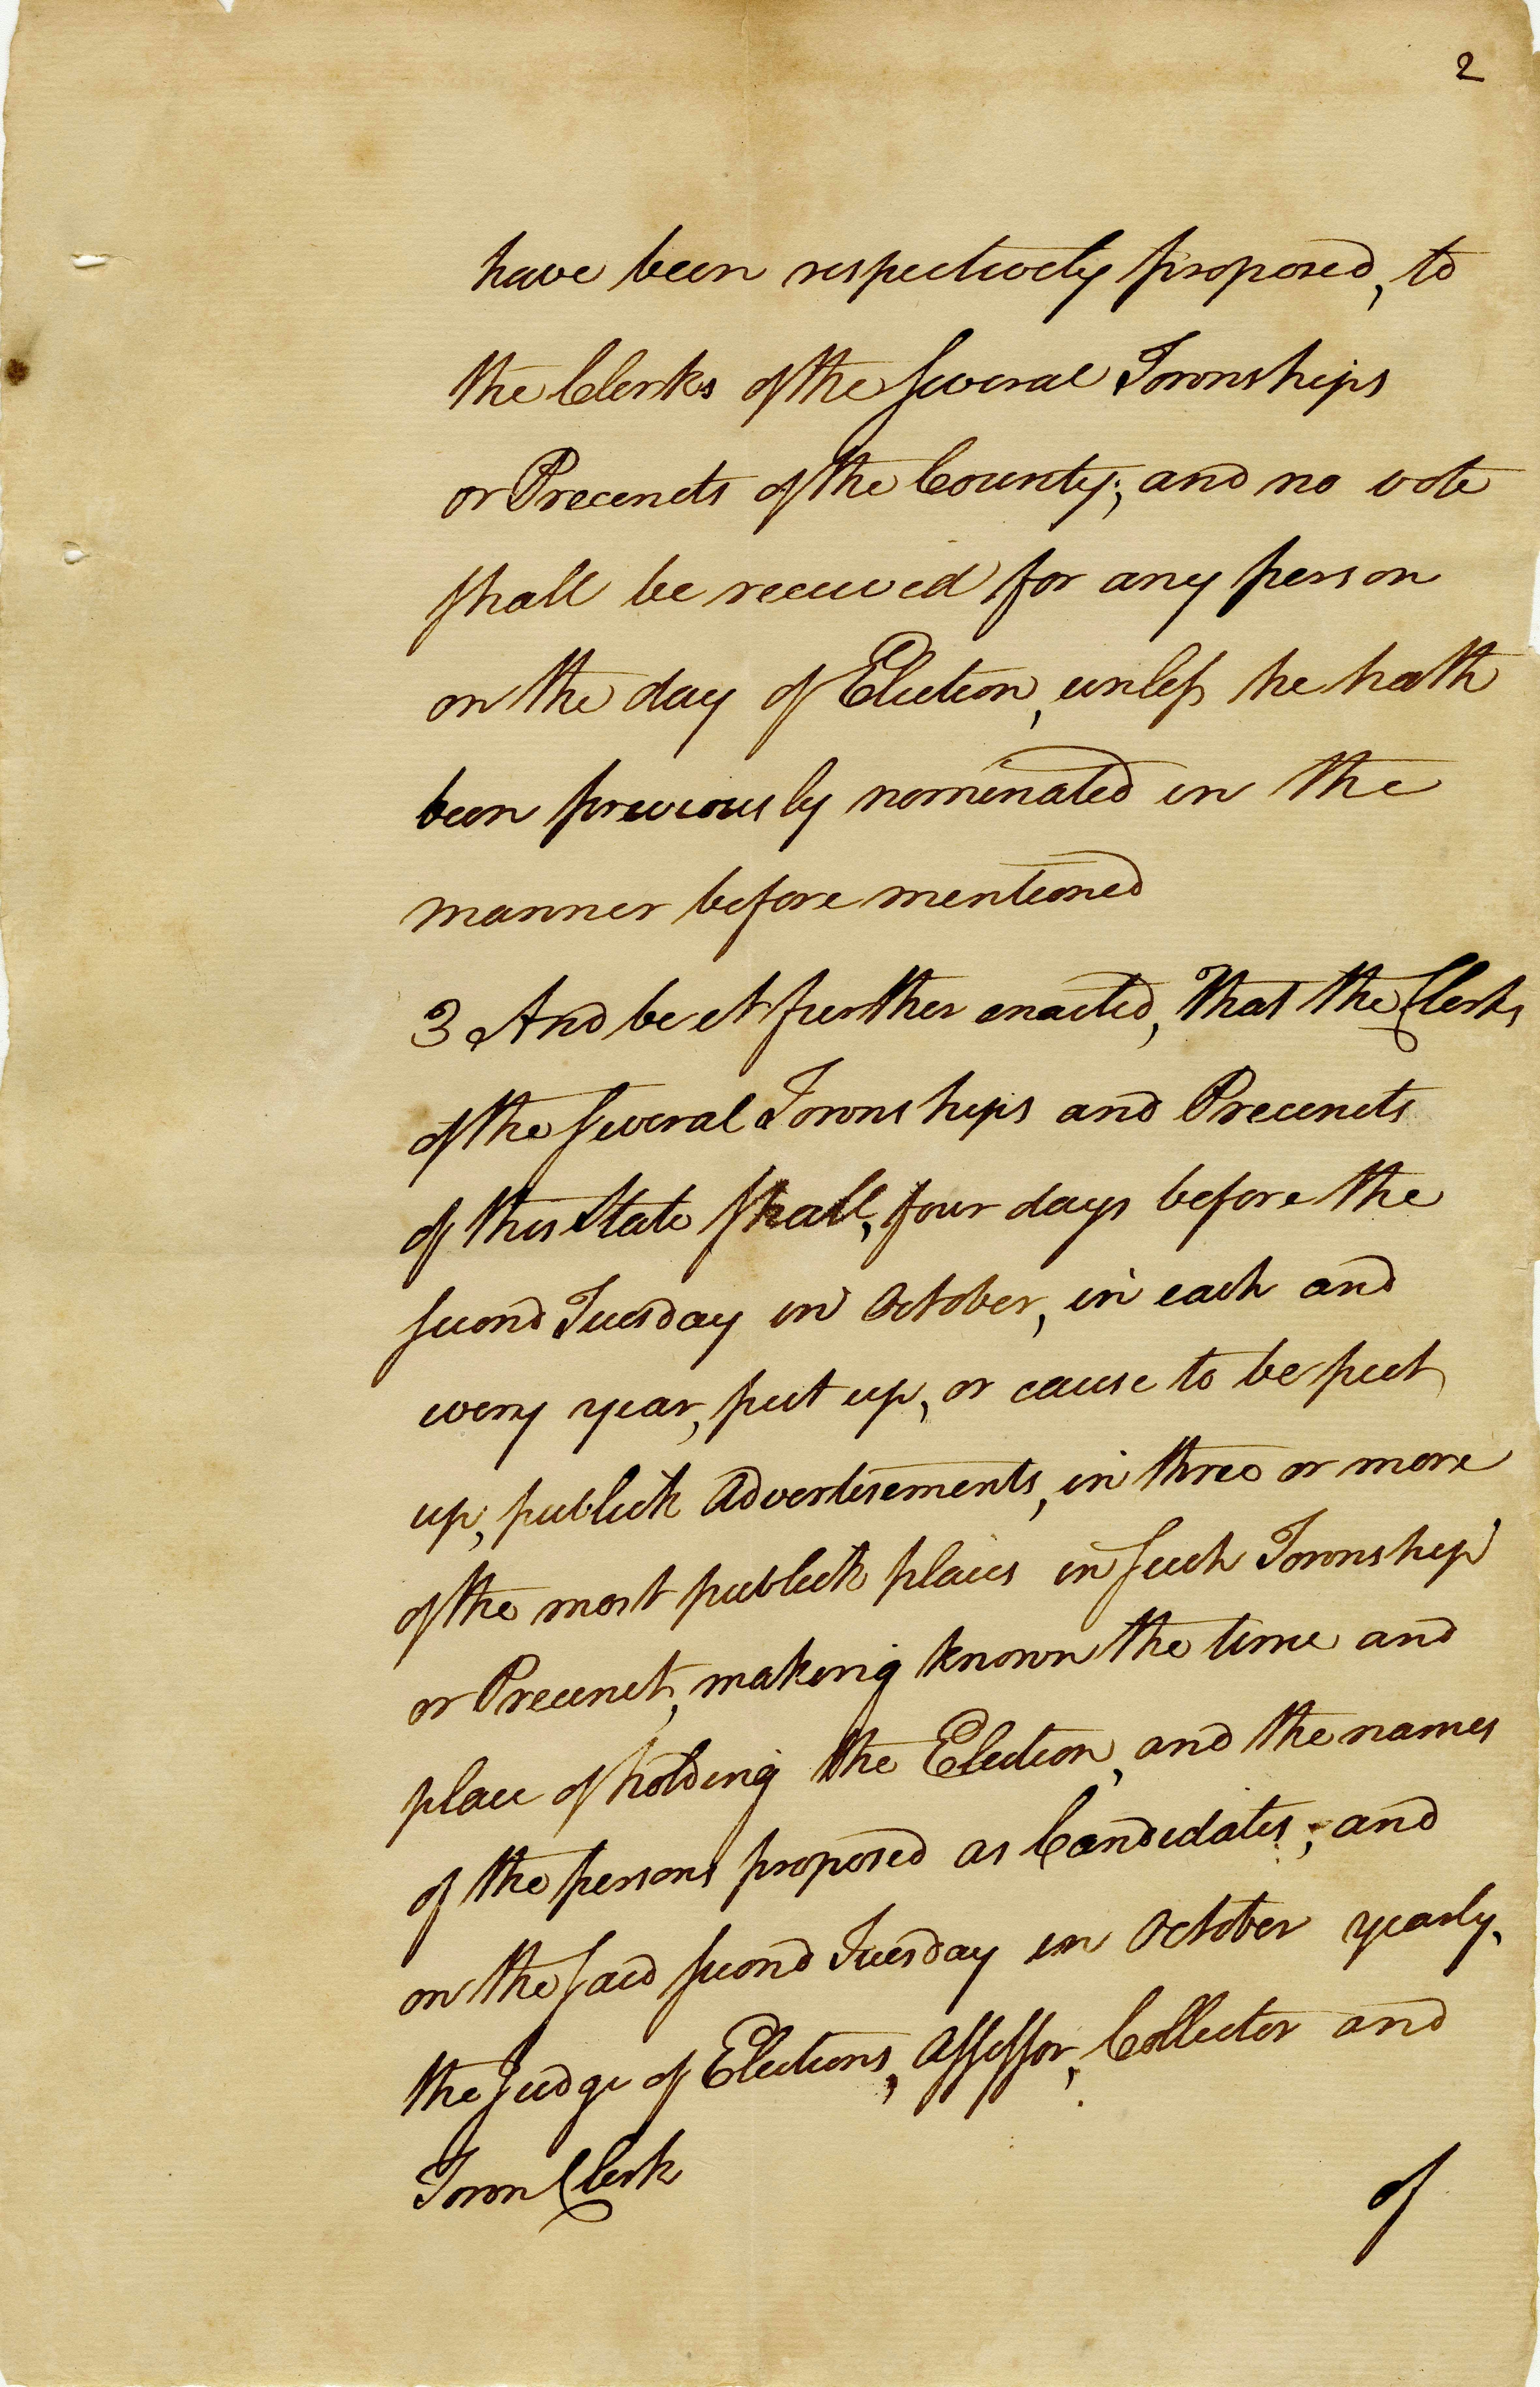 2
have been respectively proposed, to
the Clerks of the several Townships
or Precincts of the County; and no vote
shall be received for any person
on the day of Election, unless he hath
been previously nominated in the
manner before mentioned
3 And be it further enacted, That the Clerks
of the several Townships and Precincts
of this State shall, four days before the
second Tuesday in October, in each and
every year, put up, or cause to be put
up, publick Advertisements, in three or more
of the most publick places in such Township
or Precinct, making known the time and
place of holding the Election, and the names
of the persons proposed as Candidates; and
on the said second Tuesday in October yearly,
the Judge of Elections, Assessor, Collector and
Town Clerk
of